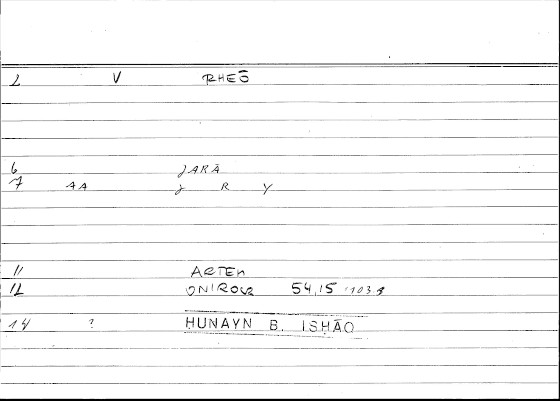 2 V RHEŌ
6 JARĀ
7 AA J R Y
11 ARTEM
12 ONIROCR 54,15 1103.8
14 ? HUNAYN B. ISḤĀQ